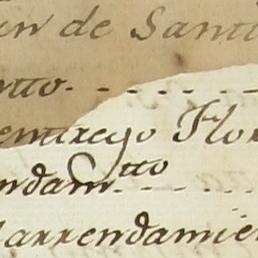 an de Santi
tto. - - - - -
entrego Flor
ndam.tto - - - -
arrendamie